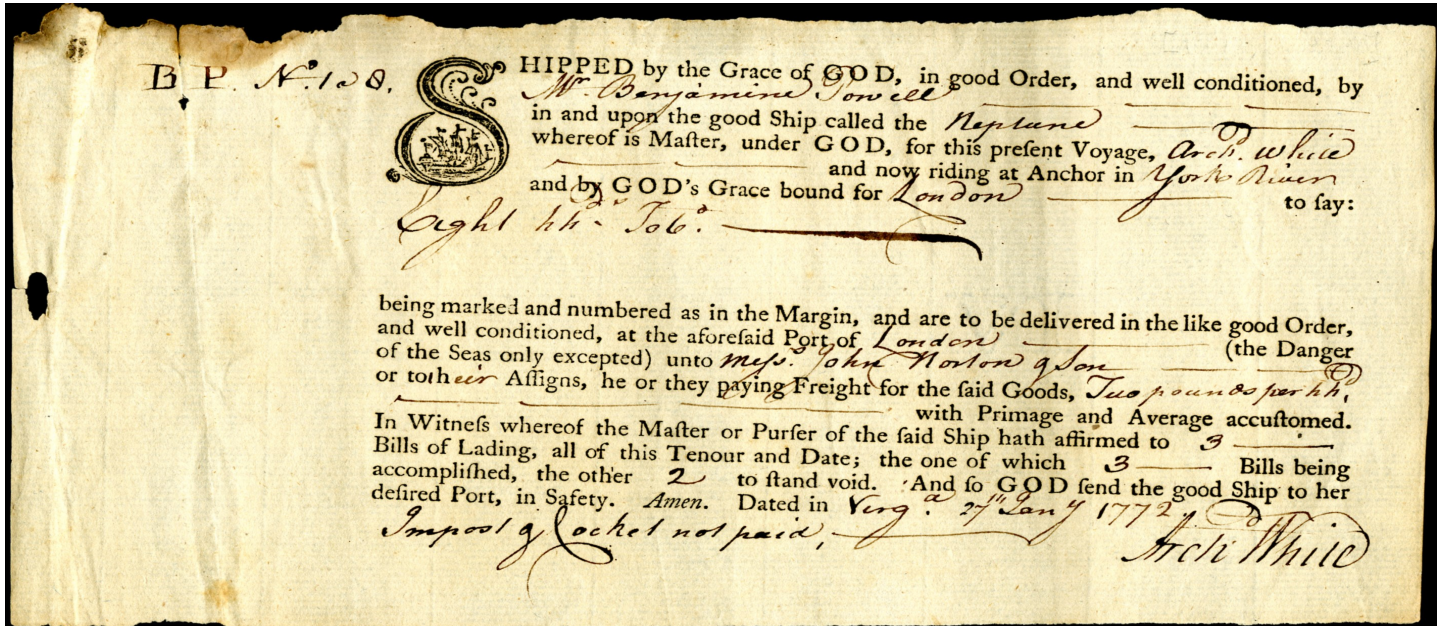 B P. No. 1 @ 8.
SHIPPED by the Grace of GOD, in good Order, and well conditioned, by
Mr. Benjamine Powell
in and upon the good Ship called the Neptune
whereof is Maſter, under GOD, for this preſent Voyage, Archd. White
and now riding at Anchor in York River
and by GOD's Grace bound for London to ſay:
Eight hhds Tobo.
being marked and numbered as in the Margin, and are to be delivered in the like good Order,
and well conditioned, at the aforeſaid Port of London (the Danger
of the Seas only excepted) unto Meſsrs. John Norton & Son
or to their Aſſigns, he or they paying Freight for the ſaid Goods, Two pounds per hhd.
with Primage and Average accuſtomed.
In Witneſs whereof the Maſter or Purſer of the ſaid Ship hath affirmed to 3
Bills of Lading, all of this Tenour and Date; the one of which 3 Bills being
accompliſhed, the other 2 to ſtand void. And ſo GOD ſend the good Ship to her
deſired Port, in Safety. Amen. Dated in Virga. 27th Jany 1772.
Impost & Cocket not paid,
Archd White